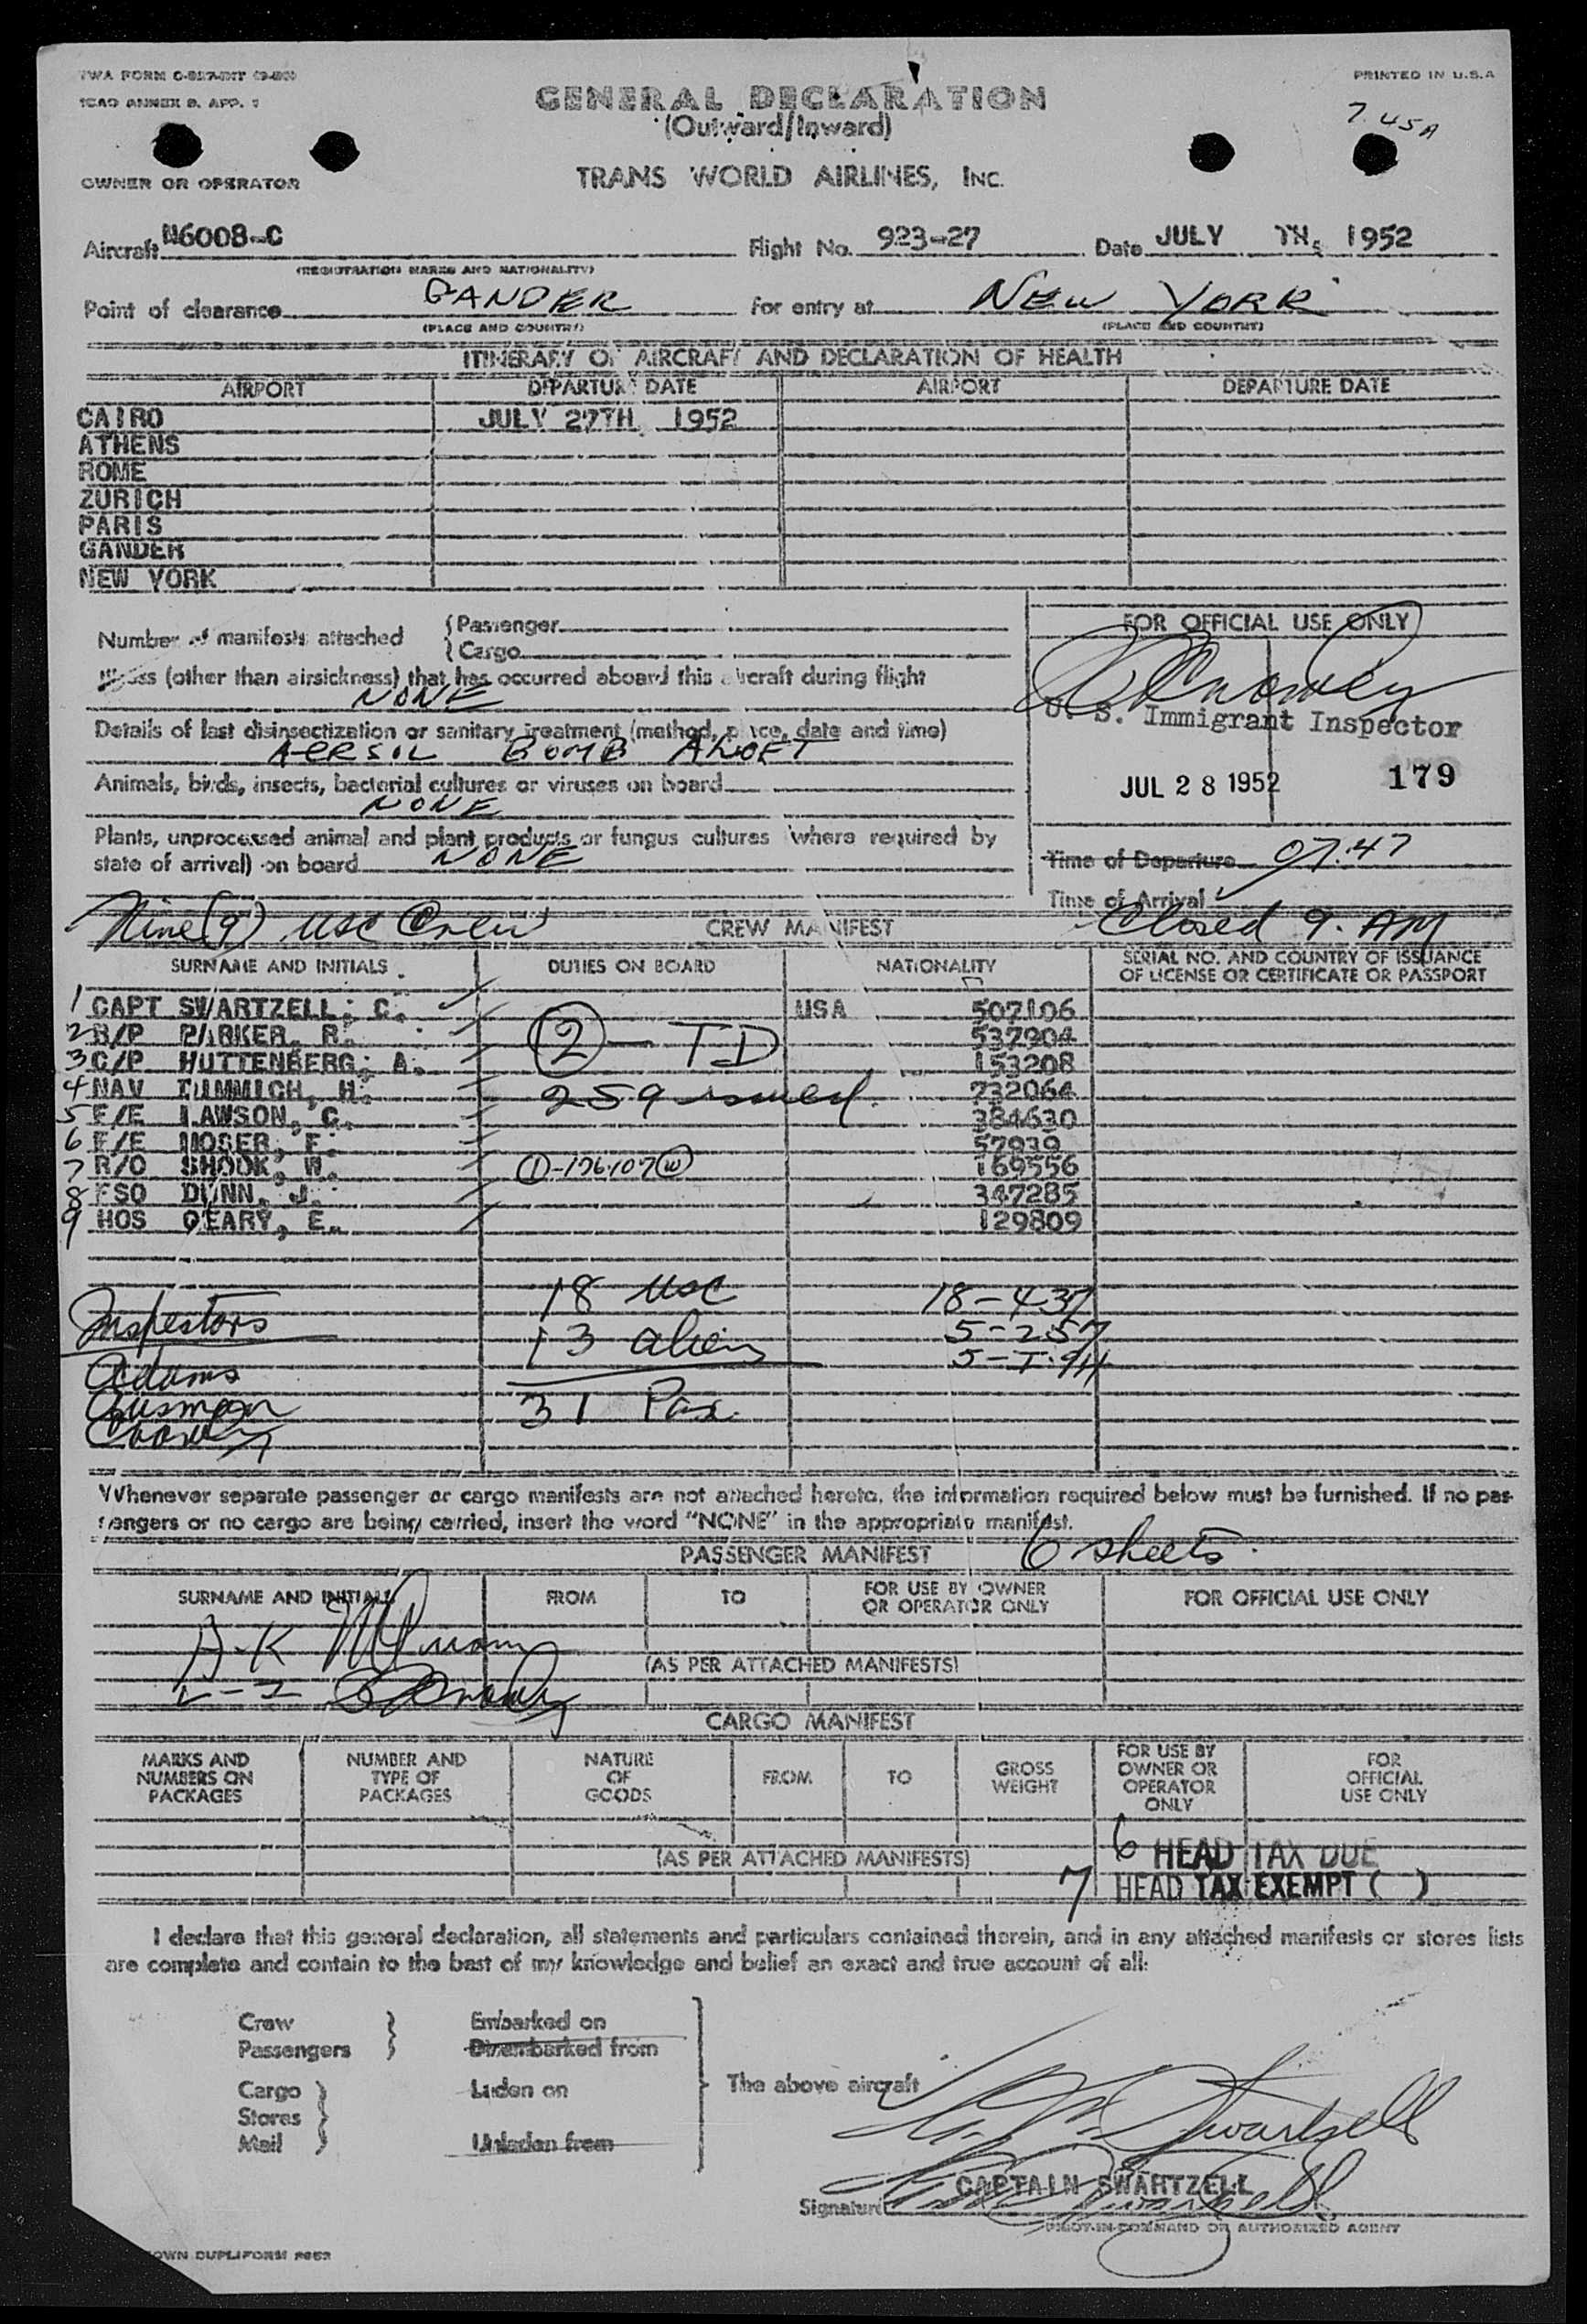 TWA FORM C-827-INT
ICAO ANNEX 9, APP. 1
PRINTED IN U.S.A
GENERAL DECLARATION
(Outward/Inward)
7.45A
TRANS WORLD AIRLINES, INC.
OWNER OR OPERATOR
Aircraft N6008-C Flight No. 923-27 Date JULY TH, 1952
(REGISTRATION MARKS AND NATIONALITY)
Point of clearance GANDER For entry at NEW YORK
(PLACE AND COUNTRY) (PLACE AND COUNTRY)
ITINERARY OF AIRCRAFT AND DECLARATION OF HEALTH
AIRPORT DEPARTURE DATE AIRPORT DEPARTURE DATE
CAIRO JULY 27TH, 1952
ATHENS
ROME
ZURICH
PARIS
GANDER
NEW YORK
Number of manifests attached { Passenger
{ Cargo
Illness (other than airsickness) that has occurred aboard this aircraft during flight
NONE
Details of last disinsectization or sanitary treatment (method, place, date and time)
AERSOL BOMB ALOFT
Animals, birds, insects, bacterial cultures or viruses on board
NONE
Plants, unprocessed animal and plant products or fungus cultures where required by
state of arrival) on board NONE
FOR OFFICIAL USE ONLY
U. S. Immigrant Inspector
JUL 28 1952 179
Time of Departure 07:47
Time of Arrival
Nine (9) USC Crew CREW MANIFEST Closed 9. AM
SURNAME AND INITIALS DUTIES ON BOARD NATIONALITY SERIAL NO. AND COUNTRY OF ISSUANCE
OF LICENSE OR CERTIFICATE OR PASSPORT
1 CAPT SWARTZELL, C. USA 507106
2 R/P PARKER, R. 2 — TD 537904
3 C/P HUTTENBERG, A. 153208
4 NAV DIMMICH, H. 259 issued. 732064
5 F/E LAWSON, C. 384630
6 F/E MOSER, F. 57939
7 R/O SHOOK, W. 1-176107 W 169556
8 FSO DUNN, J. 347285
9 HOS OEARY, E. 129809
18 USC 18-437
Inspectors 13 alien 5-257
Adams 5-I-94
31 Pax.
Whenever separate passenger or cargo manifests are not attached hereto, the information required below must be furnished. If no pas-
sengers or no cargo are being carried, insert the word "NONE" in the appropriate manifest.
PASSENGER MANIFEST 6 sheets
SURNAME AND INITIALS FROM TO FOR USE BY OWNER OR OPERATOR ONLY FOR OFFICIAL USE ONLY
A-K
(AS PER ATTACHED MANIFESTS)
L-Z
CARGO MANIFEST
MARKS AND NUMBERS ON PACKAGES NUMBER AND TYPE OF PACKAGES NATURE OF GOODS FROM TO GROSS WEIGHT FOR USE BY OWNER OR OPERATOR ONLY FOR OFFICIAL USE ONLY
6 HEAD TAX DUE
(AS PER ATTACHED MANIFESTS)
7 HEAD TAX EXEMPT ( )
I declare that this general declaration, all statements and particulars contained therein, and in any attached manifests or stores lists
are complete and contain to the best of my knowledge and belief an exact and true account of all:
Crew } Embarked on
Passengers } Disembarked from
Cargo } Laden on The above aircraft
Stores }
Mail } Unladen from
CAPTAIN SWARTZELL
Signature
PILOT-IN-COMMAND OR AUTHORIZED AGENT